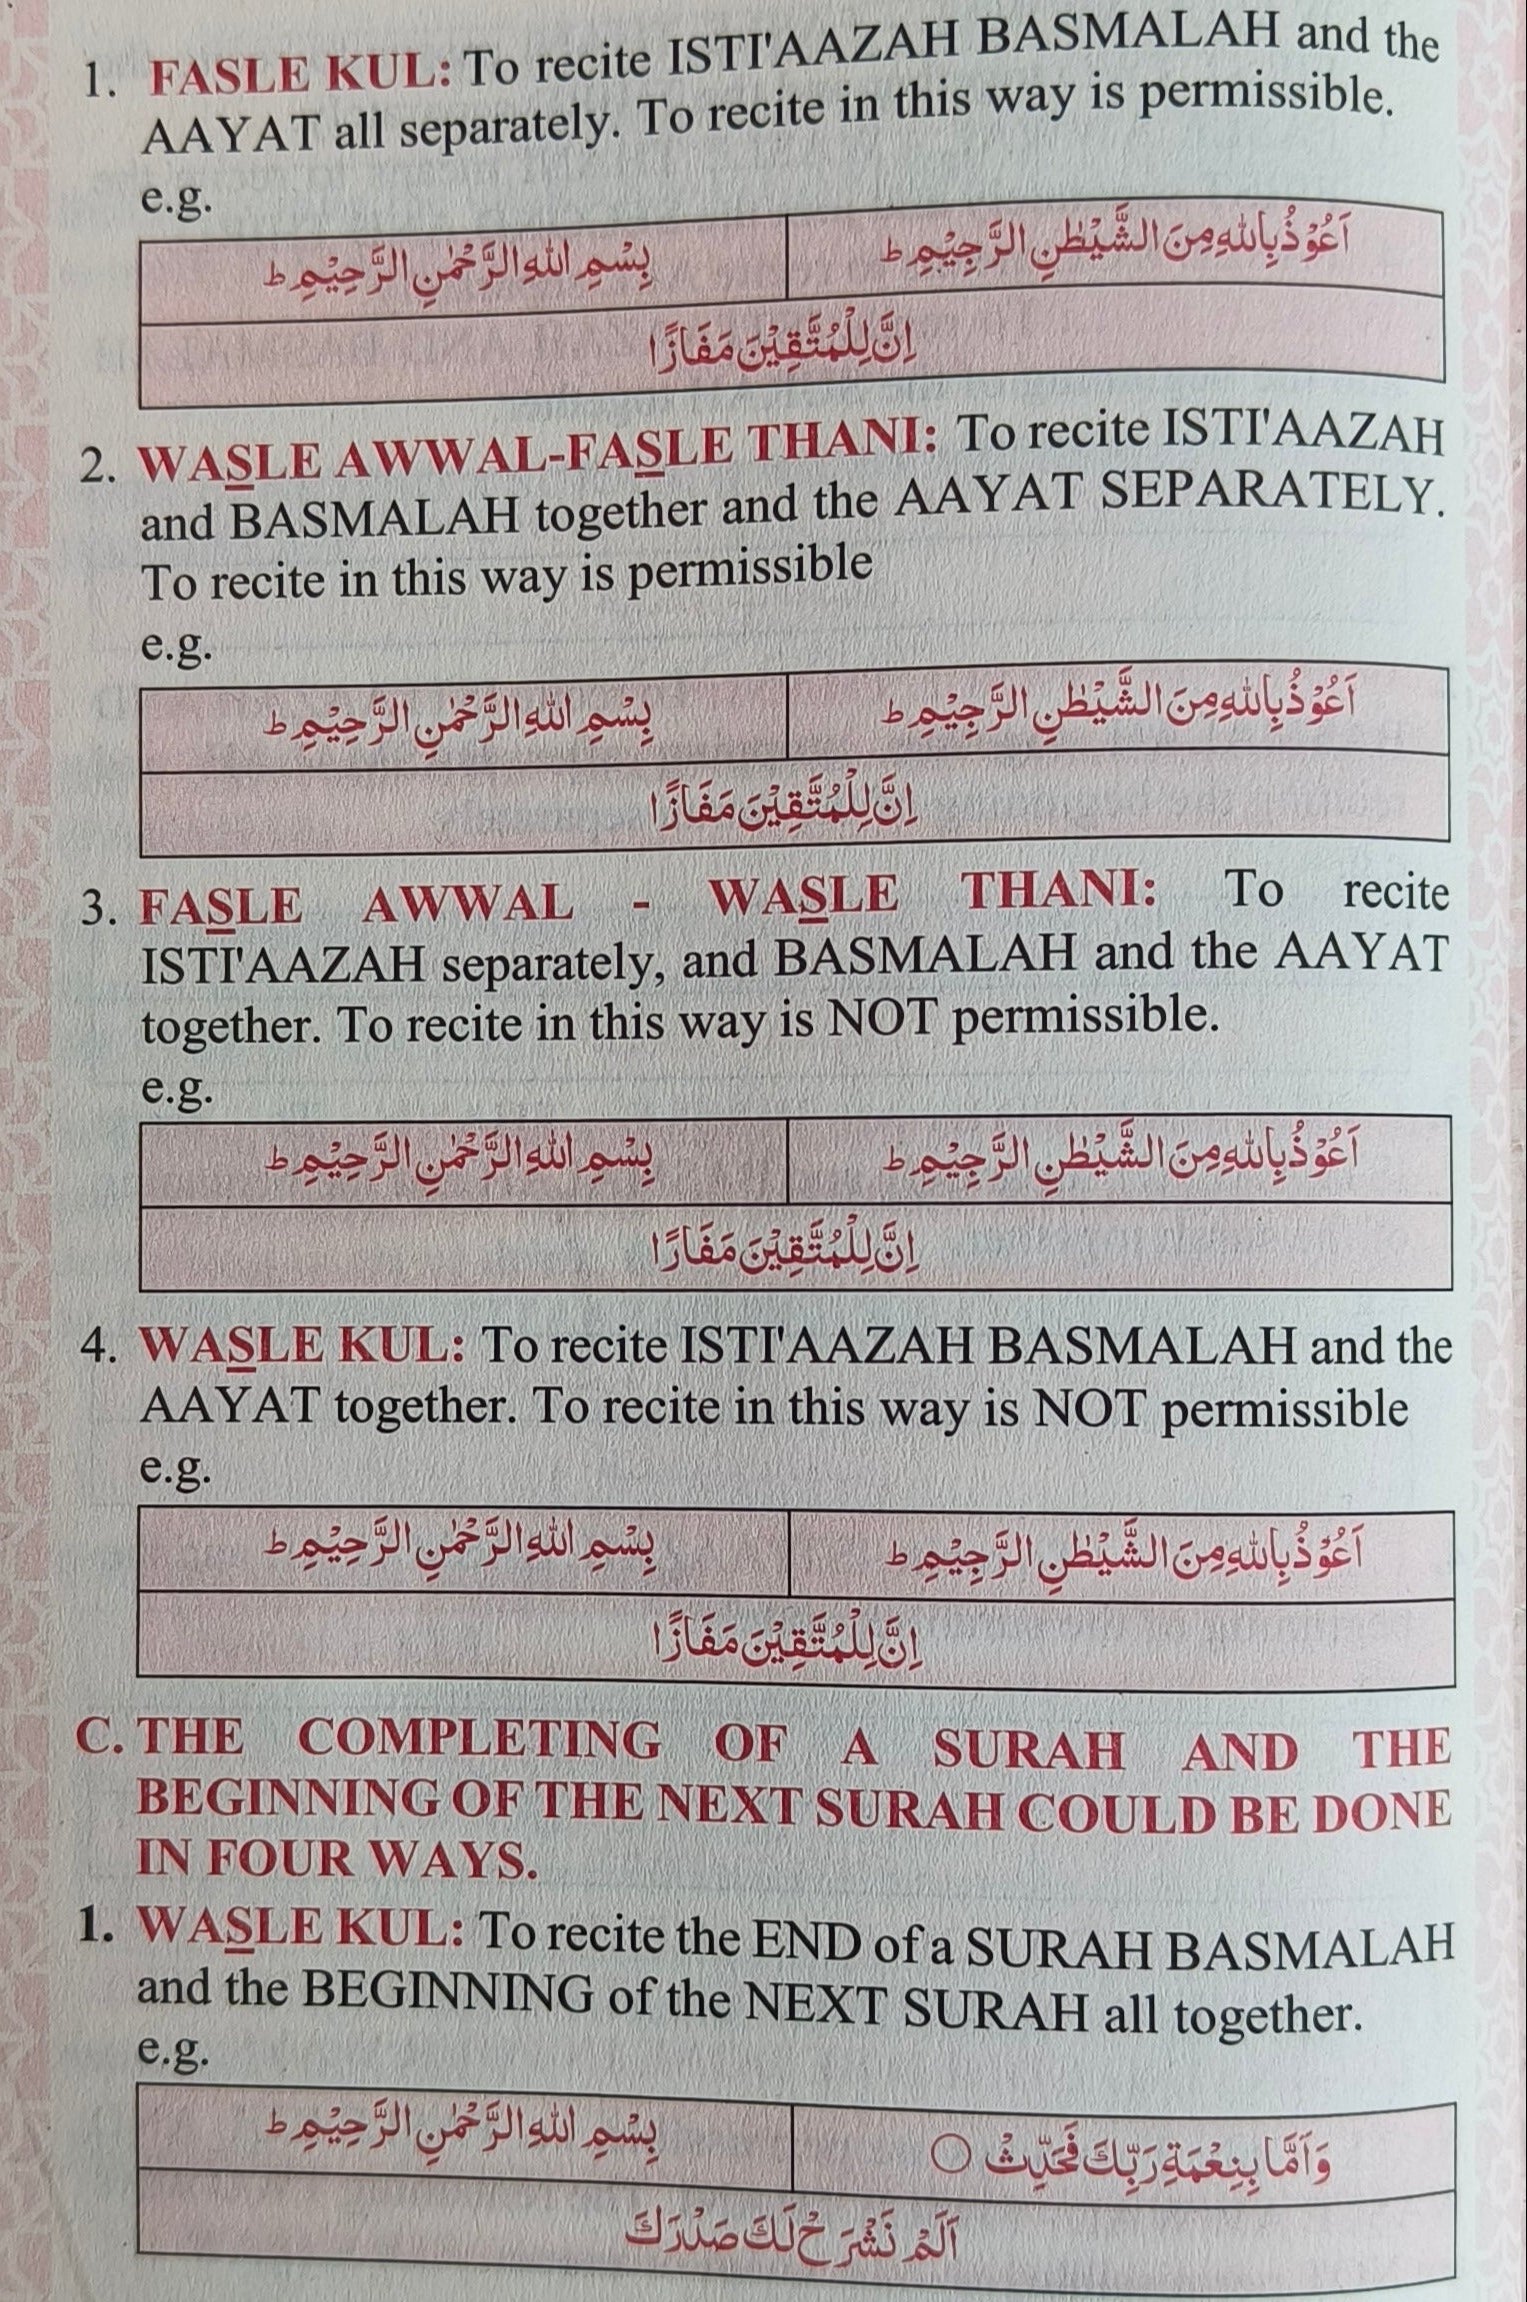 1. FASLE KUL: To recite ISTI'AAZAH BASMALAH and the
AAYAT all separately. To recite in this way is permissible.
e.g.
اَعُوْذُ بِاللهِ مِنَ الشَّيْطٰنِ الرَّجِيْمِ ط
بِسْمِ اللهِ الرَّحْمٰنِ الرَّحِيْمِ ط
اِنَّ لِلْمُتَّقِيْنَ مَفَازًا
2. WASLE AWWAL-FASLE THANI: To recite ISTI'AAZAH
and BASMALAH together and the AAYAT SEPARATELY.
To recite in this way is permissible
e.g.
اَعُوْذُ بِاللهِ مِنَ الشَّيْطٰنِ الرَّجِيْمِ ط
بِسْمِ اللهِ الرَّحْمٰنِ الرَّحِيْمِ ط
اِنَّ لِلْمُتَّقِيْنَ مَفَازًا
3. FASLE AWWAL - WASLE THANI: To recite
ISTI'AAZAH separately, and BASMALAH and the AAYAT
together. To recite in this way is NOT permissible.
e.g.
اَعُوْذُ بِاللهِ مِنَ الشَّيْطٰنِ الرَّجِيْمِ ط
بِسْمِ اللهِ الرَّحْمٰنِ الرَّحِيْمِ ط
اِنَّ لِلْمُتَّقِيْنَ مَفَازًا
4. WASLE KUL: To recite ISTI'AAZAH BASMALAH and the
AAYAT together. To recite in this way is NOT permissible
e.g.
اَعُوْذُ بِاللهِ مِنَ الشَّيْطٰنِ الرَّجِيْمِ ط
بِسْمِ اللهِ الرَّحْمٰنِ الرَّحِيْمِ ط
اِنَّ لِلْمُتَّقِيْنَ مَفَازًا
C. THE COMPLETING OF A SURAH AND THE
BEGINNING OF THE NEXT SURAH COULD BE DONE
IN FOUR WAYS.
1. WASLE KUL: To recite the END of a SURAH BASMALAH
and the BEGINNING of the NEXT SURAH all together.
e.g.
وَاَمَّا بِنِعْمَةِ رَبِّكَ فَحَدِّثْ ○
بِسْمِ اللهِ الرَّحْمٰنِ الرَّحِيْمِ ط
اَلَمْ نَشْرَحْ لَكَ صَدْرَكَ